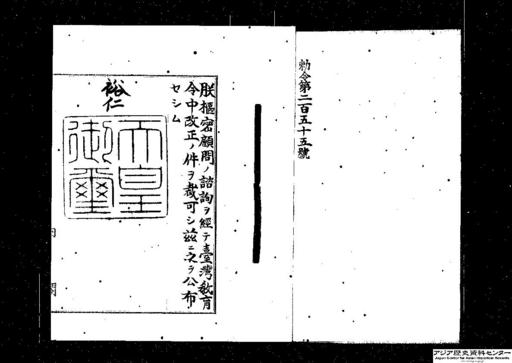 勅令第二百五十五號
朕樞密顧問ノ諮詢ヲ經テ臺灣敎育
令中改正ノ件ヲ裁可シ玆ニ之ヲ公布
セシム
裕仁
天皇
御璽
内
閣
アジア歴史資料センター
Japan Center for Asian Historical Records